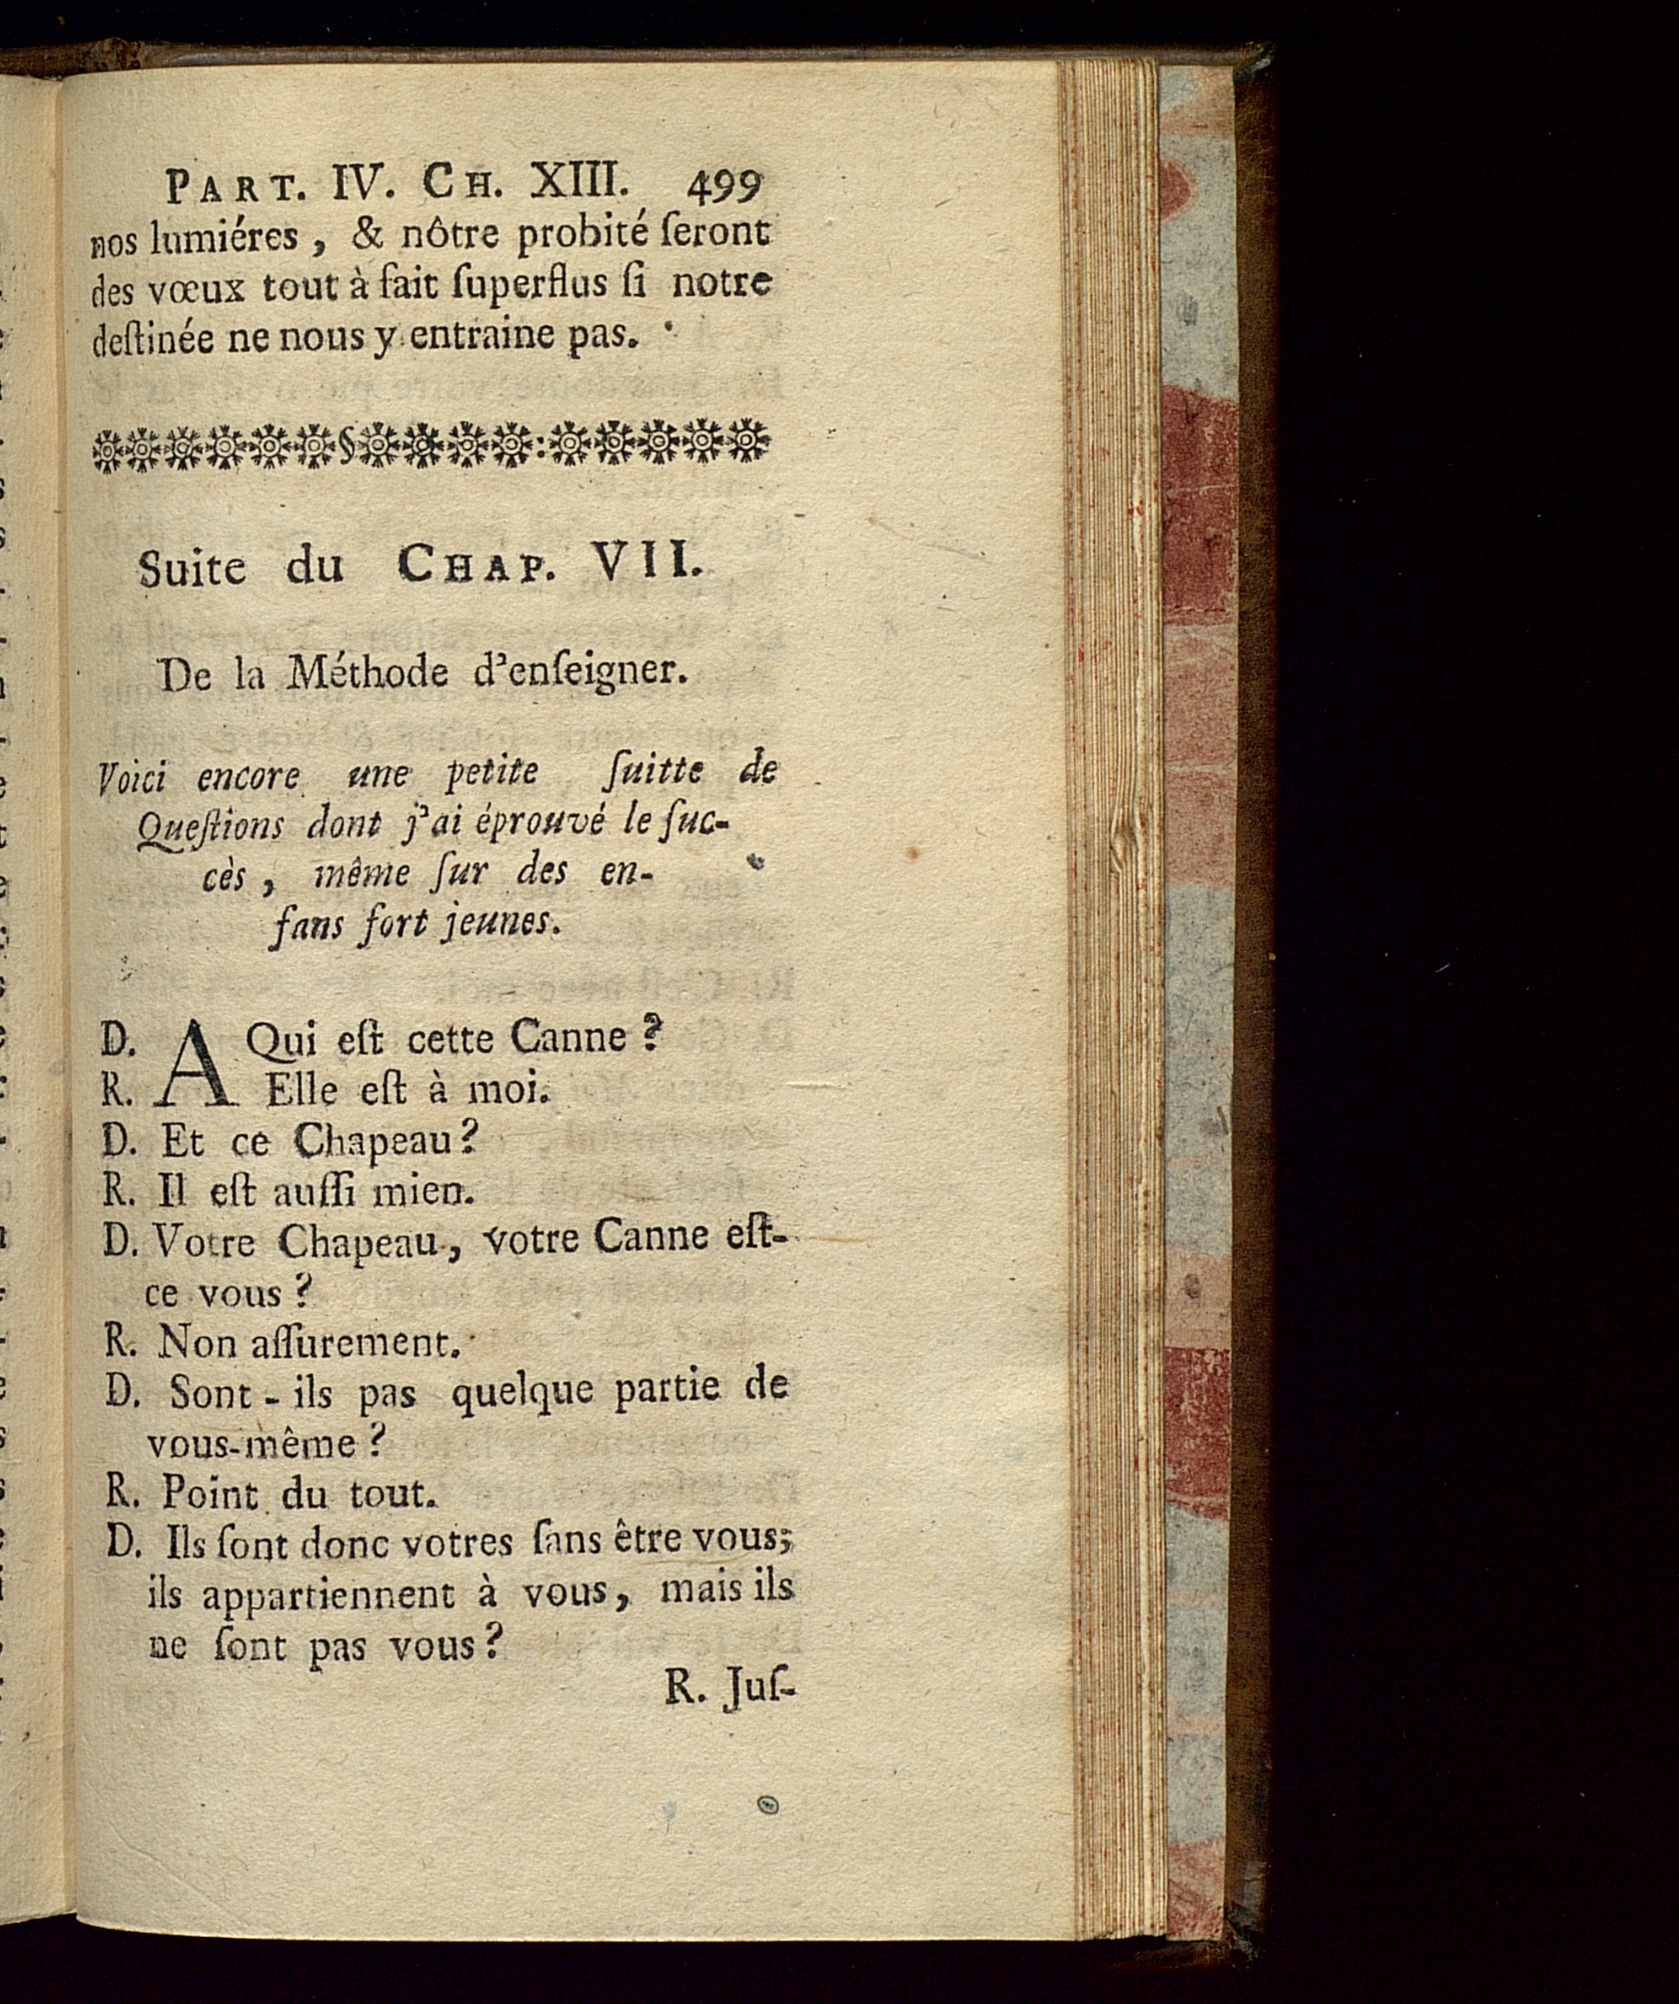 PART. IV. CH. XIII. 499
nos lumiéres, & nôtre probité ſeront
des vœux tout à fait ſuperflus ſi notre
deſtinée ne nous y entraine pas.
Suite du CHAP. VII.
De la Méthode d'enſeigner.
Voici encore une petite ſuitte de
Queſtions dont j'ai éprouvé le ſuc-
cès, même ſur des en-
fans fort jeunes.
D. A Qui eſt cette Canne?
R. Elle eſt à moi.
D. Et ce Chapeau?
R. Il eſt auſſi mien.
D. Votre Chapeau, votre Canne eſt-
ce vous?
R. Non aſſurement.
D. Sont-ils pas quelque partie de
vous-même?
R. Point du tout.
D. Ils ſont donc votres ſans être vous;
ils appartiennent à vous, mais ils
ne ſont pas vous?
R. Juſ-